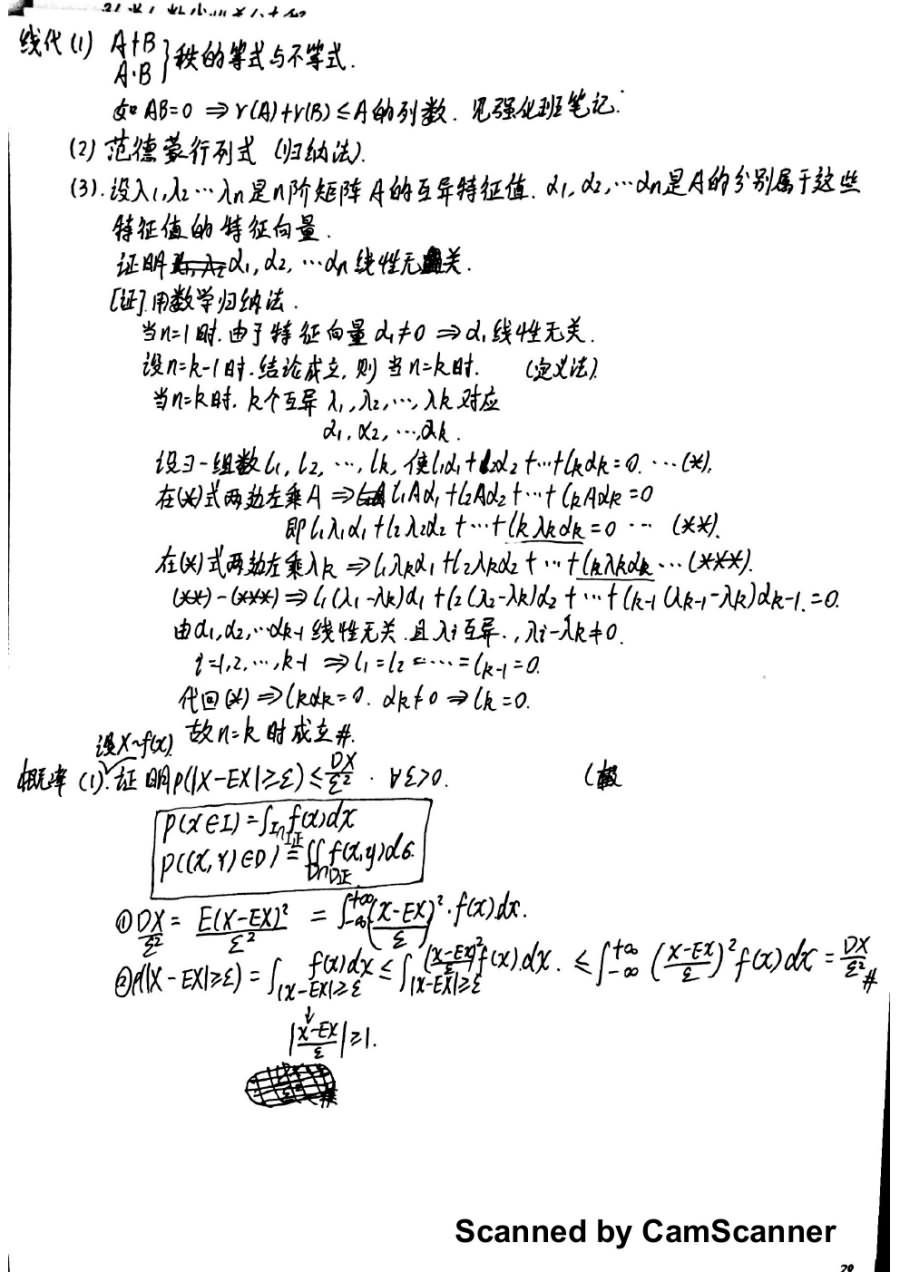 线代(1) A+B
A·B }秩的等式与不等式.
如AB=0 ⇒ r(A)+r(B)≤A的列数. 见强化班笔记.
(2) 范德蒙行列式 (归纳法).
(3). 设λ1,λ2…λn是n阶矩阵A的互异特征值. α1, α2, …αn是A的分别属于这些
特征值的特征向量.
证明α1, α2, …αn线性无关.
[证]用数学归纳法.
当n=1时.由于特征向量α1≠0 ⇒α1线性无关.
设n=k-1时.结论成立,则当n=k时. (定义法).
当n=k时. k个互异 λ1,λ2,…,λk对应
α1, α2, …,αk.
设∃一组数l1, l2, …, lk, 使l1α1+l2α2+…+lkαk=0. …(*).
在(*)式两边左乘A ⇒ l1Aα1+l2Aα2+…+lkAαk=0
即 l1λ1α1+l2λ2α2+…+lkλkαk=0 … (**).
在(*)式两边左乘λk ⇒l1λkα1+l2λkα2+…+lkλkαk …(***).
(**)-(***)⇒ l1(λ1-λk)α1+l2(λ2-λk)α2+…+lk-1(λk-1-λk)αk-1.=0.
由α1,α2,…αk-1线性无关.且λi互异., λi-λk≠0.
i=1,2,…,k-1 ⇒l1=l2=…=lk-1=0.
代回(*) ⇒lkαk=0. αk≠0⇒lk=0.
故n=k时成立#.
设X~f(x).
概率 (1).证明P(|X-EX|≥ε)≤DX/ε². ∀ε>0. (
P(X∈I)=∫I∩I正 f(x)dx
P((X,Y)∈D)=∬D∩D正 f(x,y)dσ.
①DX/ε²=E(X-EX)²/ε² =∫-∞+∞((X-EX)/ε)²·f(x)dx.
②P(|X-EX|≥ε)=∫|x-EX|≥ε f(x)dx≤∫|x-EX|≥ε ((x-EX)/ε)²f(x).dx. ≤∫-∞+∞((x-EX)/ε)²f(x)dx=DX/ε² #
↓
|(x-EX)/ε|≥1.
Scanned by CamScanner